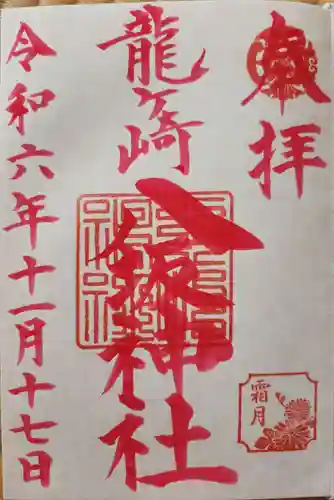 奉拝
龍ヶ崎
八坂神社
令和六年十一月十七日
霜月